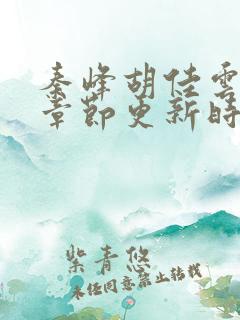 秦峰胡佳雲
章節更新時
紫青悠
未经同意禁止转载